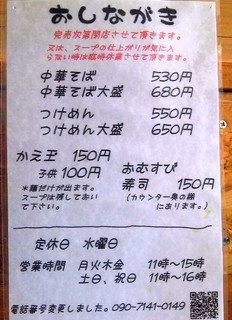 おしながき
完売次第閉店させて頂きます。
又は、スープの仕上がりが気に入
らない時は臨時休業させて頂きます。
中華そば 530円
中華そば大盛 680円
つけめん 550円
つけめん大盛 650円
かえ玉 150円
子供 100円
*麺だけが出ます。
スープは残しておい
て下さい。
おむすび
寿司 150円
(カウンター奥の棚
にあります。)
定休日 水曜日
営業時間 月火木金 11時〜15時
土日、祝日 11時〜16時
電話番号変更しました。090-7141-0149